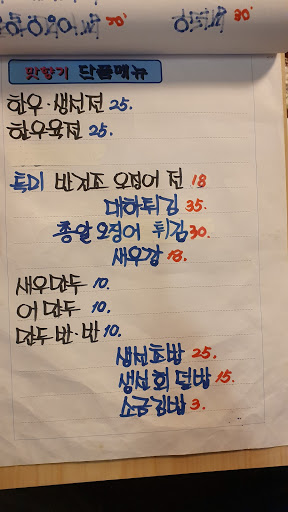 70'
30'
맛향기 단품메뉴
한우·생선전 25.
한우육전 25.
특미 반건조 오징어 전 18
대하튀김 35.
총알오징어 튀김 30.
새우깡 18.
새우만두 10.
어만두 10.
만두 반·반 10.
생선초밥 25.
생선회 덮밥 15.
소금김밥 3.